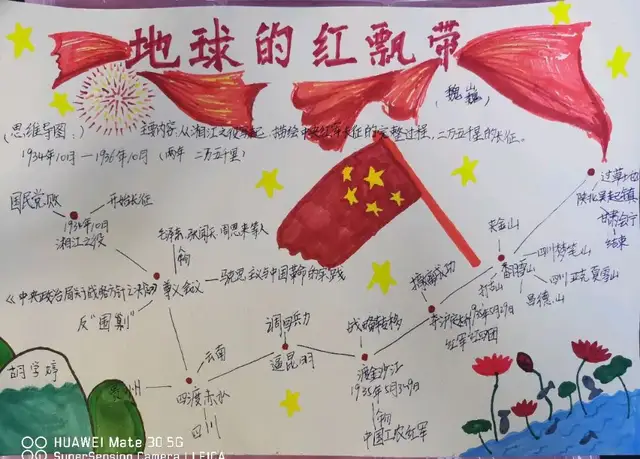 地球的红飘带
(魏巍)
(思维导图:) 主要内容:从湘江之役写起,描绘中央红军长征的完整过程,二万五千里的长征。
1934年10月—1936年10月(两年 二万五千里)
国民党败
开始长征
1934年10月
湘江之役
毛泽东、张闻天、周恩来等人
遵义会议
反"围剿"
云南
四渡赤水
四川
州
调动兵力
逼昆明
战略转移
渡金沙江
1935年5月3~9日
中国工农红军
1935年5月29日
红军红四团
夹金山
翻雪山
四川梦笔山
昌德山
过草地
陕北吴起镇
甘肃会宁
结束
胡学婷
HUAWEI Mate 30 5G
SuperSensing Camera | LEICA